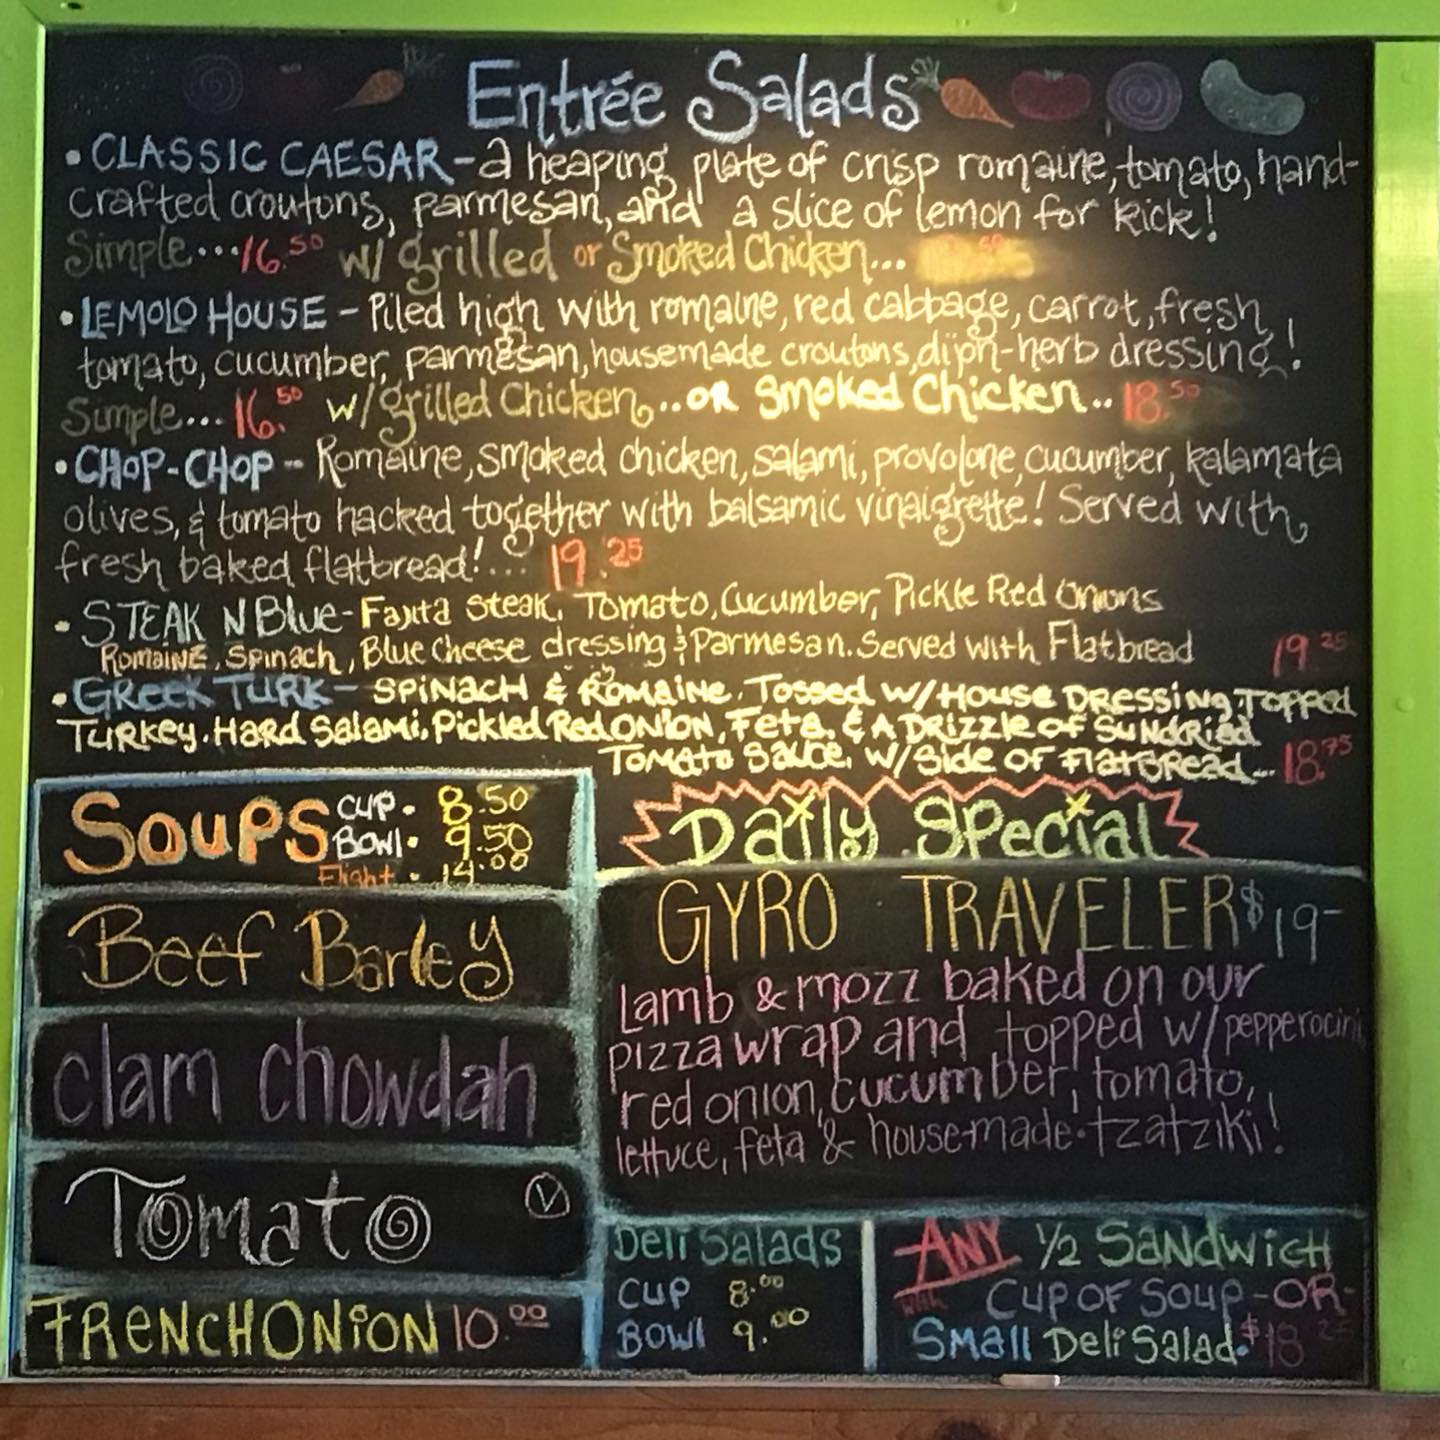 Entrée Salads
• CLASSIC CAESAR - a heaping plate of crisp romaine, tomato, hand-
crafted croutons, parmesan, and a slice of lemon for kick!
Simple...16.50 w/ grilled or Smoked Chicken...
• LEMOLO HOUSE - Piled high with romaine, red cabbage, carrot, fresh
tomato, cucumber, parmesan, housemade croutons, dijon-herb dressing!
Simple... 16.50 w/grilled Chicken...OR Smoked Chicken.. 18.50
• CHOP-CHOP - Romaine, smoked chicken, salami, provolone, cucumber, kalamata
olives, & tomato hacked together with balsamic vinaigrette! Served with
fresh baked flatbread!... 19.25
• STEAK N Blue - Fajita Steak, Tomato, Cucumber, Pickle Red Onions
Romaine, Spinach, Blue Cheese dressing & Parmesan. Served with Flatbread 19.25
• GREEK TURK - SPINACH & ROMAINE. Tossed w/House Dressing. Topped
Turkey. Hard Salami, Pickled Red Onion, Feta, & A Drizzle of Sundried
Tomato Sauce, w/Side of Flatbread... 18.75
Soups CUP. 8.50
BOWl. 9.50
Flight. 14.00
Beef Barley
clam chowdah
Tomato V
FRENCH ONION 10.00
Daily Special
GYRO TRAVELER $19-
Lamb & mozz baked on our
pizza wrap and topped w/ pepperocini
red onion, cucumber, tomato,
lettuce, feta & house-made tzatziki!
Deli Salads
CUP 8.00
BOWl 9.00
ANY ½ SANDWICH
with CUP OF SOUP -OR-
SMAll Deli Salad. $18.25